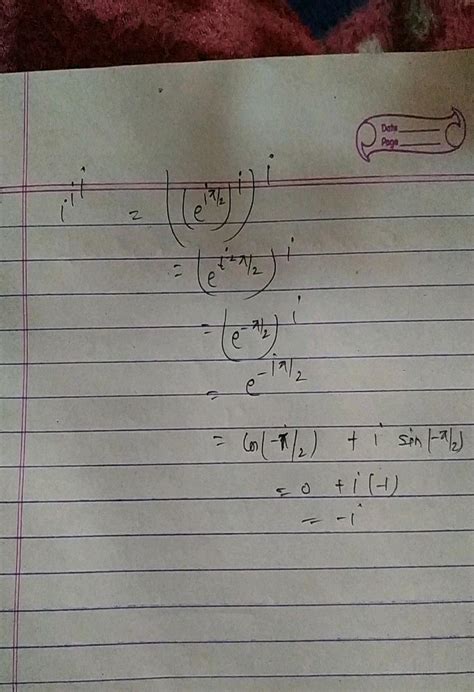 Date
Page
i^i^i = (((e^iπ/2)^i)^i
= (e^i²π/2)^i
= (e^-π/2)^i
= e^-iπ/2
= cos(-π/2) + i sin(-π/2)
= 0 + i(-1)
= -i